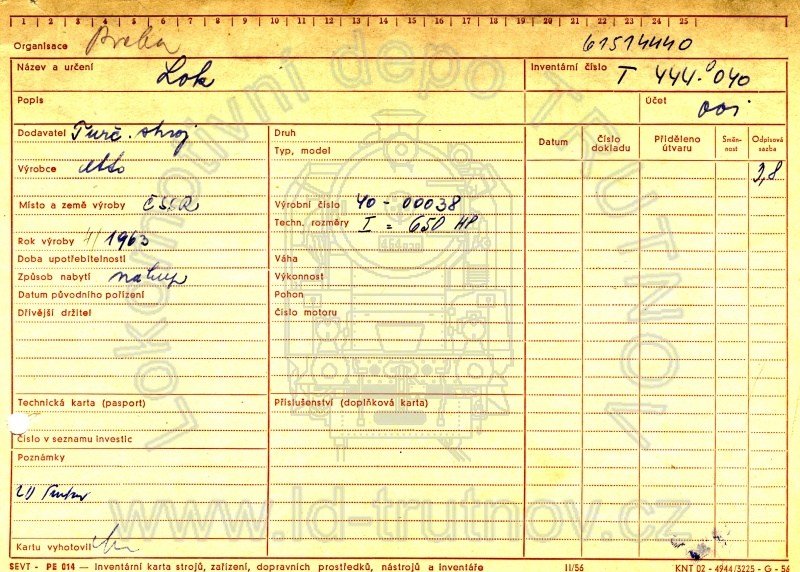 1 2 3 4 5 6 7 8 9 10 11 12 13 14 15 16 17 18 19 20 21 22 23 24 25
Organisace 61514440
Název a určení Lok
Inventární číslo T 444.0 040
Popis
Účet 001
Dodavatel Turč. stroj
Výrobce
Místo a země výroby ČSSR
Rok výroby 4/1963
Doba upotřebitelnosti
Způsob nabytí nákup
Datum původního pořízení
Dřívější držitel
Druh
Typ, model
Výrobní číslo 40-00038
Techn. rozměry I = 650 HP
Váha
Výkonnost
Pohon
Číslo motoru
Datum
Číslo dokladu
Přiděleno útvaru
Směnnost
Odpisová sazba
3,8
Technická karta (pasport)
Číslo v seznamu investic
Příslušenství (doplňková karta)
Poznámky
LD Trutnov
Kartu vyhotovil
SEVT - PE 014 — Inventární karta strojů, zařízení, dopravních prostředků, nástrojů a inventáře
II/56
KNT 02 - 4944/3225 - G - 56
Lokomotivní depo TRUTNOV
www.ld-trutnov.cz